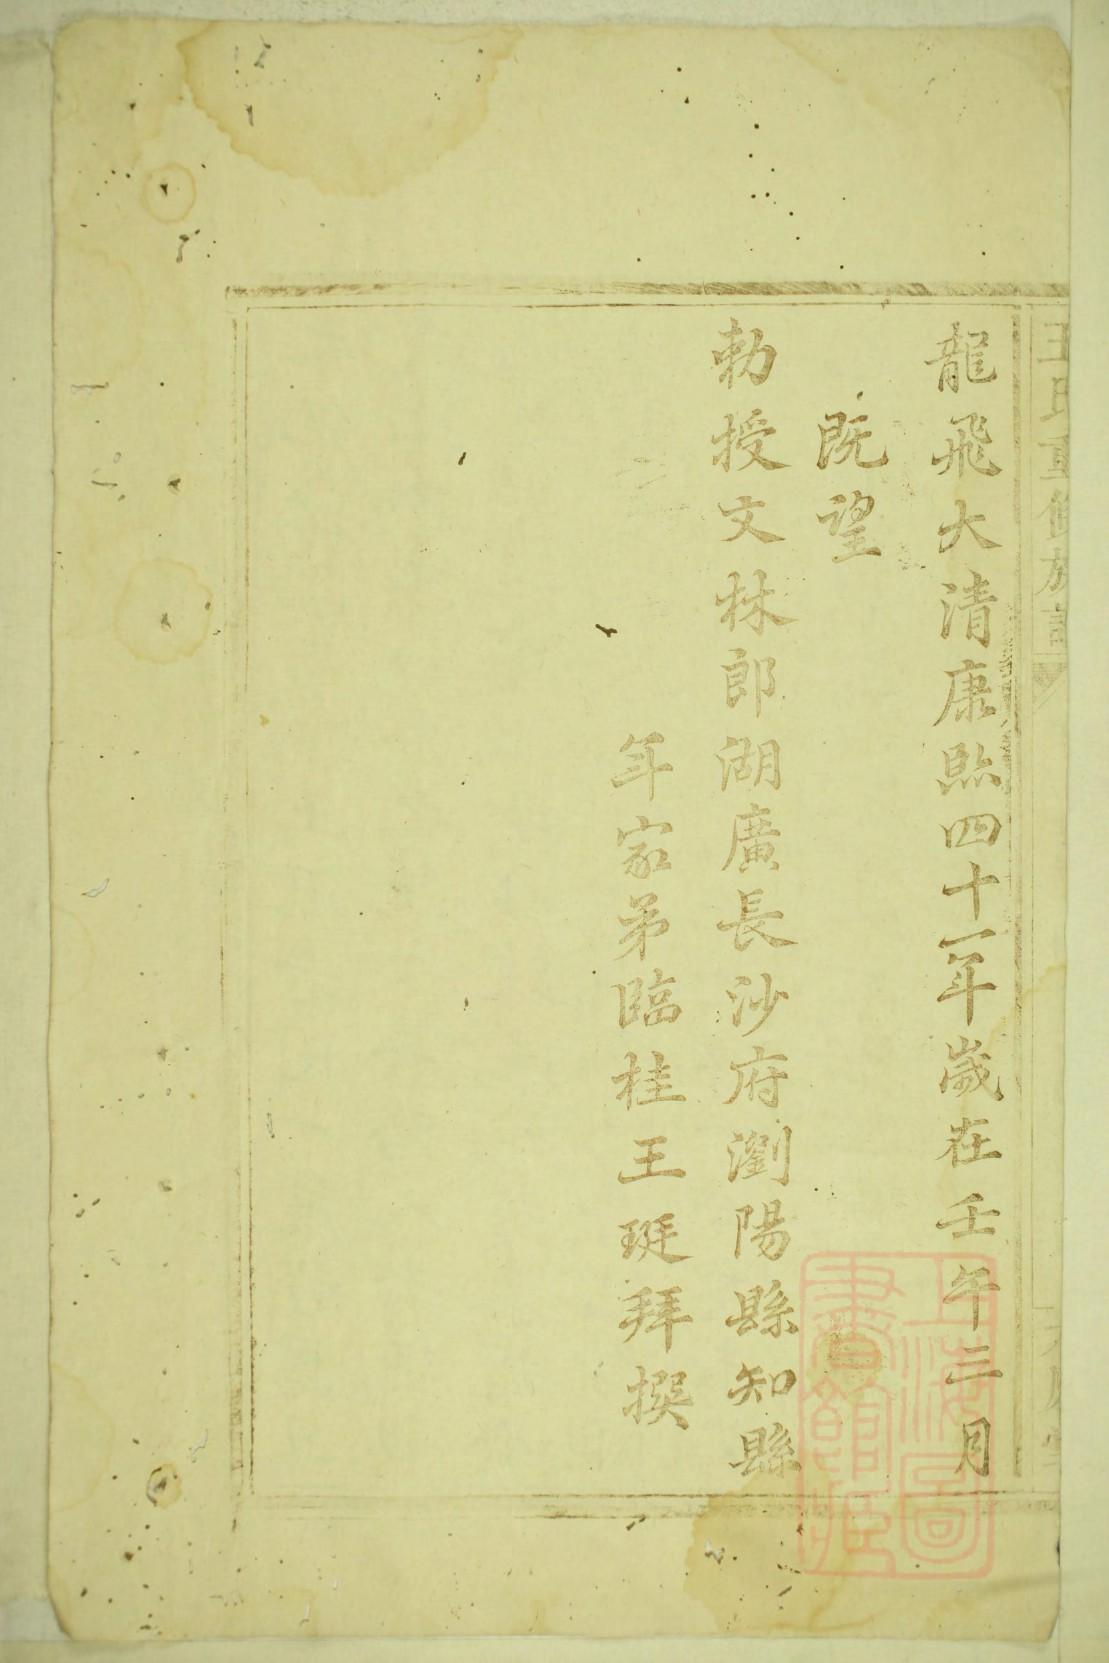 龍飛大清康熙四十一年歲在壬午三月
既望
勅授文林郎湖廣長沙府瀏陽縣知縣
年家弟臨桂王珽拜撰
王氏重修族譜
上海圖書館藏